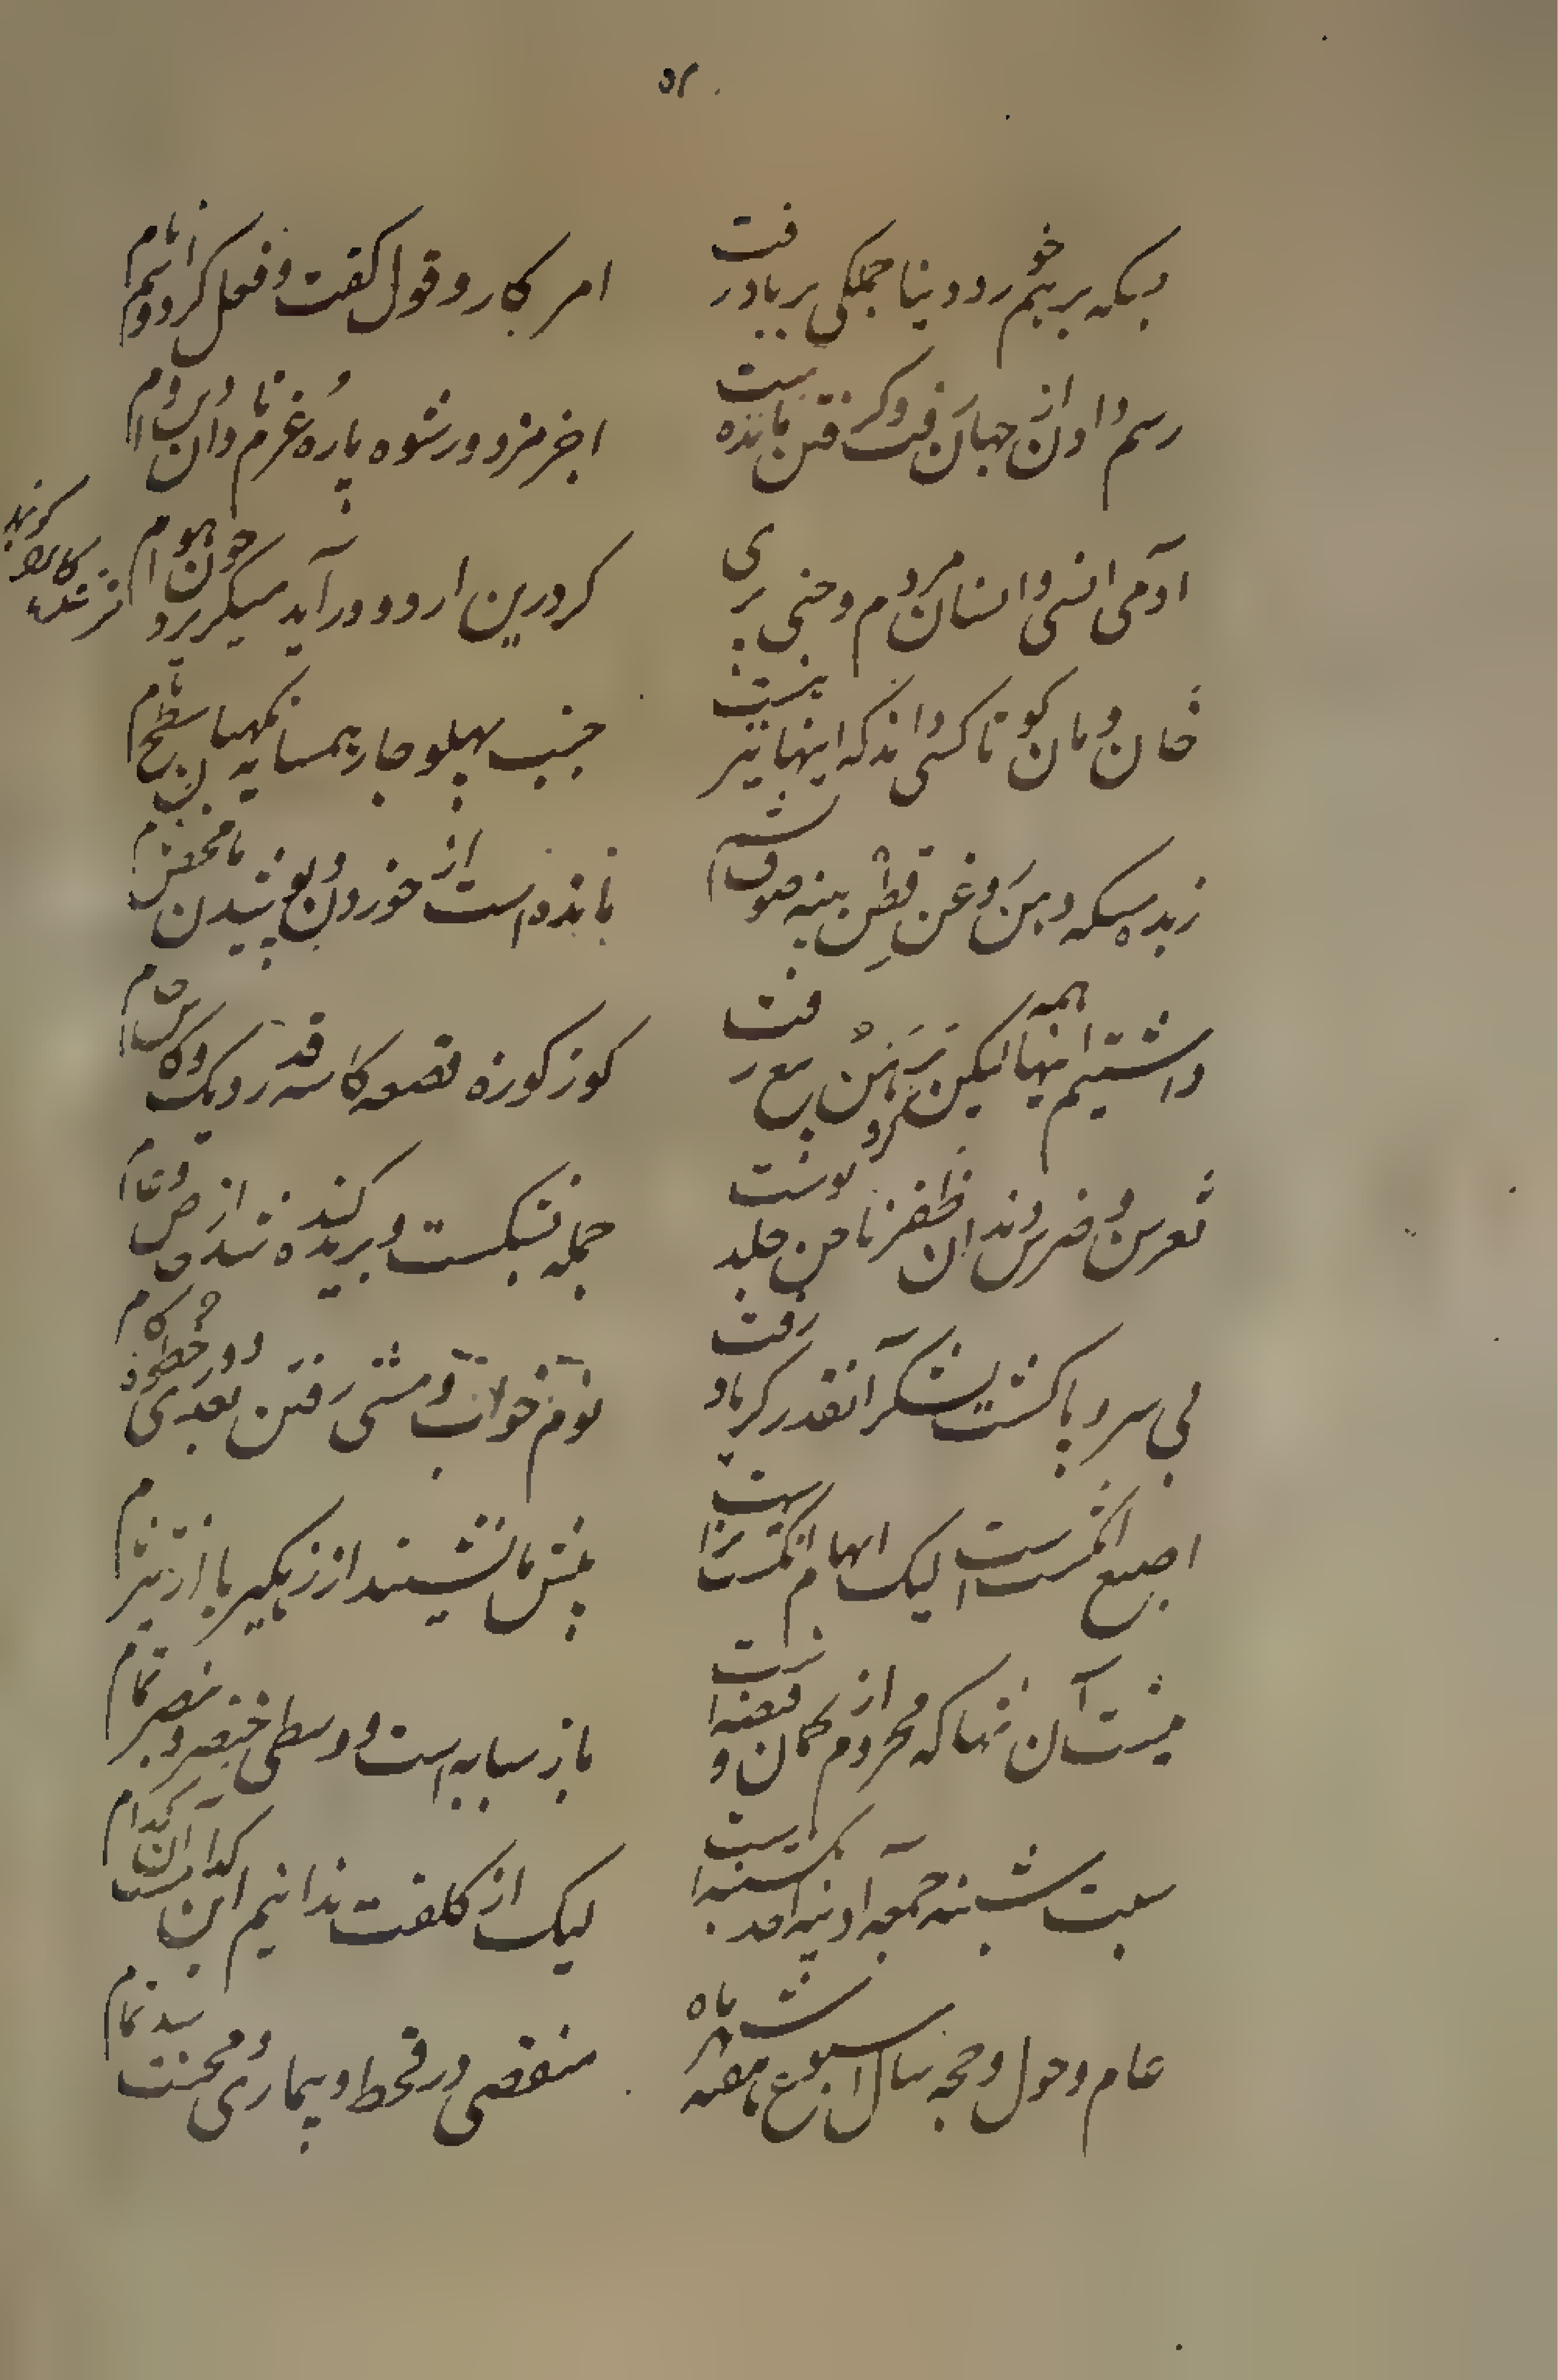 ۵۲
بسکه برهم خورد دنیا جملگی بر باد رفت
امر کار و قول گفت و فعل کرد و اسم نام
رسم دادن از جهان رفت و گرفتن مانده است
اجر مزد و رشوه پاره غرم تاوان و دین وام
آدمی انسی و انسان مردم و جنی پری
گر درین اردو درآید میگریزد چون هوام
خان و مان کو تا کسی داند که اینها نیز نیست
جنب پهلو جار همسایه نگهبان سطح بام
زبد مسکه دهن روغن قطن پنبه صوف پشم
مانده است از خوردن و پوشیدن ما محض نام
داشتیم اینها همه لیکن برهن و بیع رفت
کوز کوزه قصعه کاسه قدر دیک و کاس جام
ثغر سن و ضرس دندان ظفر ناخن جلد پوست
جمله بشکست و برید کنده شد از خاص و عام
بی سر و پا گشت لشکر آنقدر کز یاد رفت
نوم خواب و مشی رفتن بعد دوری خطوه گام
اصبع انگشت است لیک ابهام انگشت نر است
پیش ما نشیند از زهگیر ما از تیر نام
نیست آن تنها که محروم از کمان و قبضه است
باز سبابه است و وسطی خنصر و بنصر تمام
سبت شنبه جمعه آدینه احد یکشنبه است
لیک از کلفت ندانیم این کدامست آن کدام
عام و حول و حجه سال اسبوع هفته شهر ماه
منقضی در قحط و بیماری و محنت شد تمام